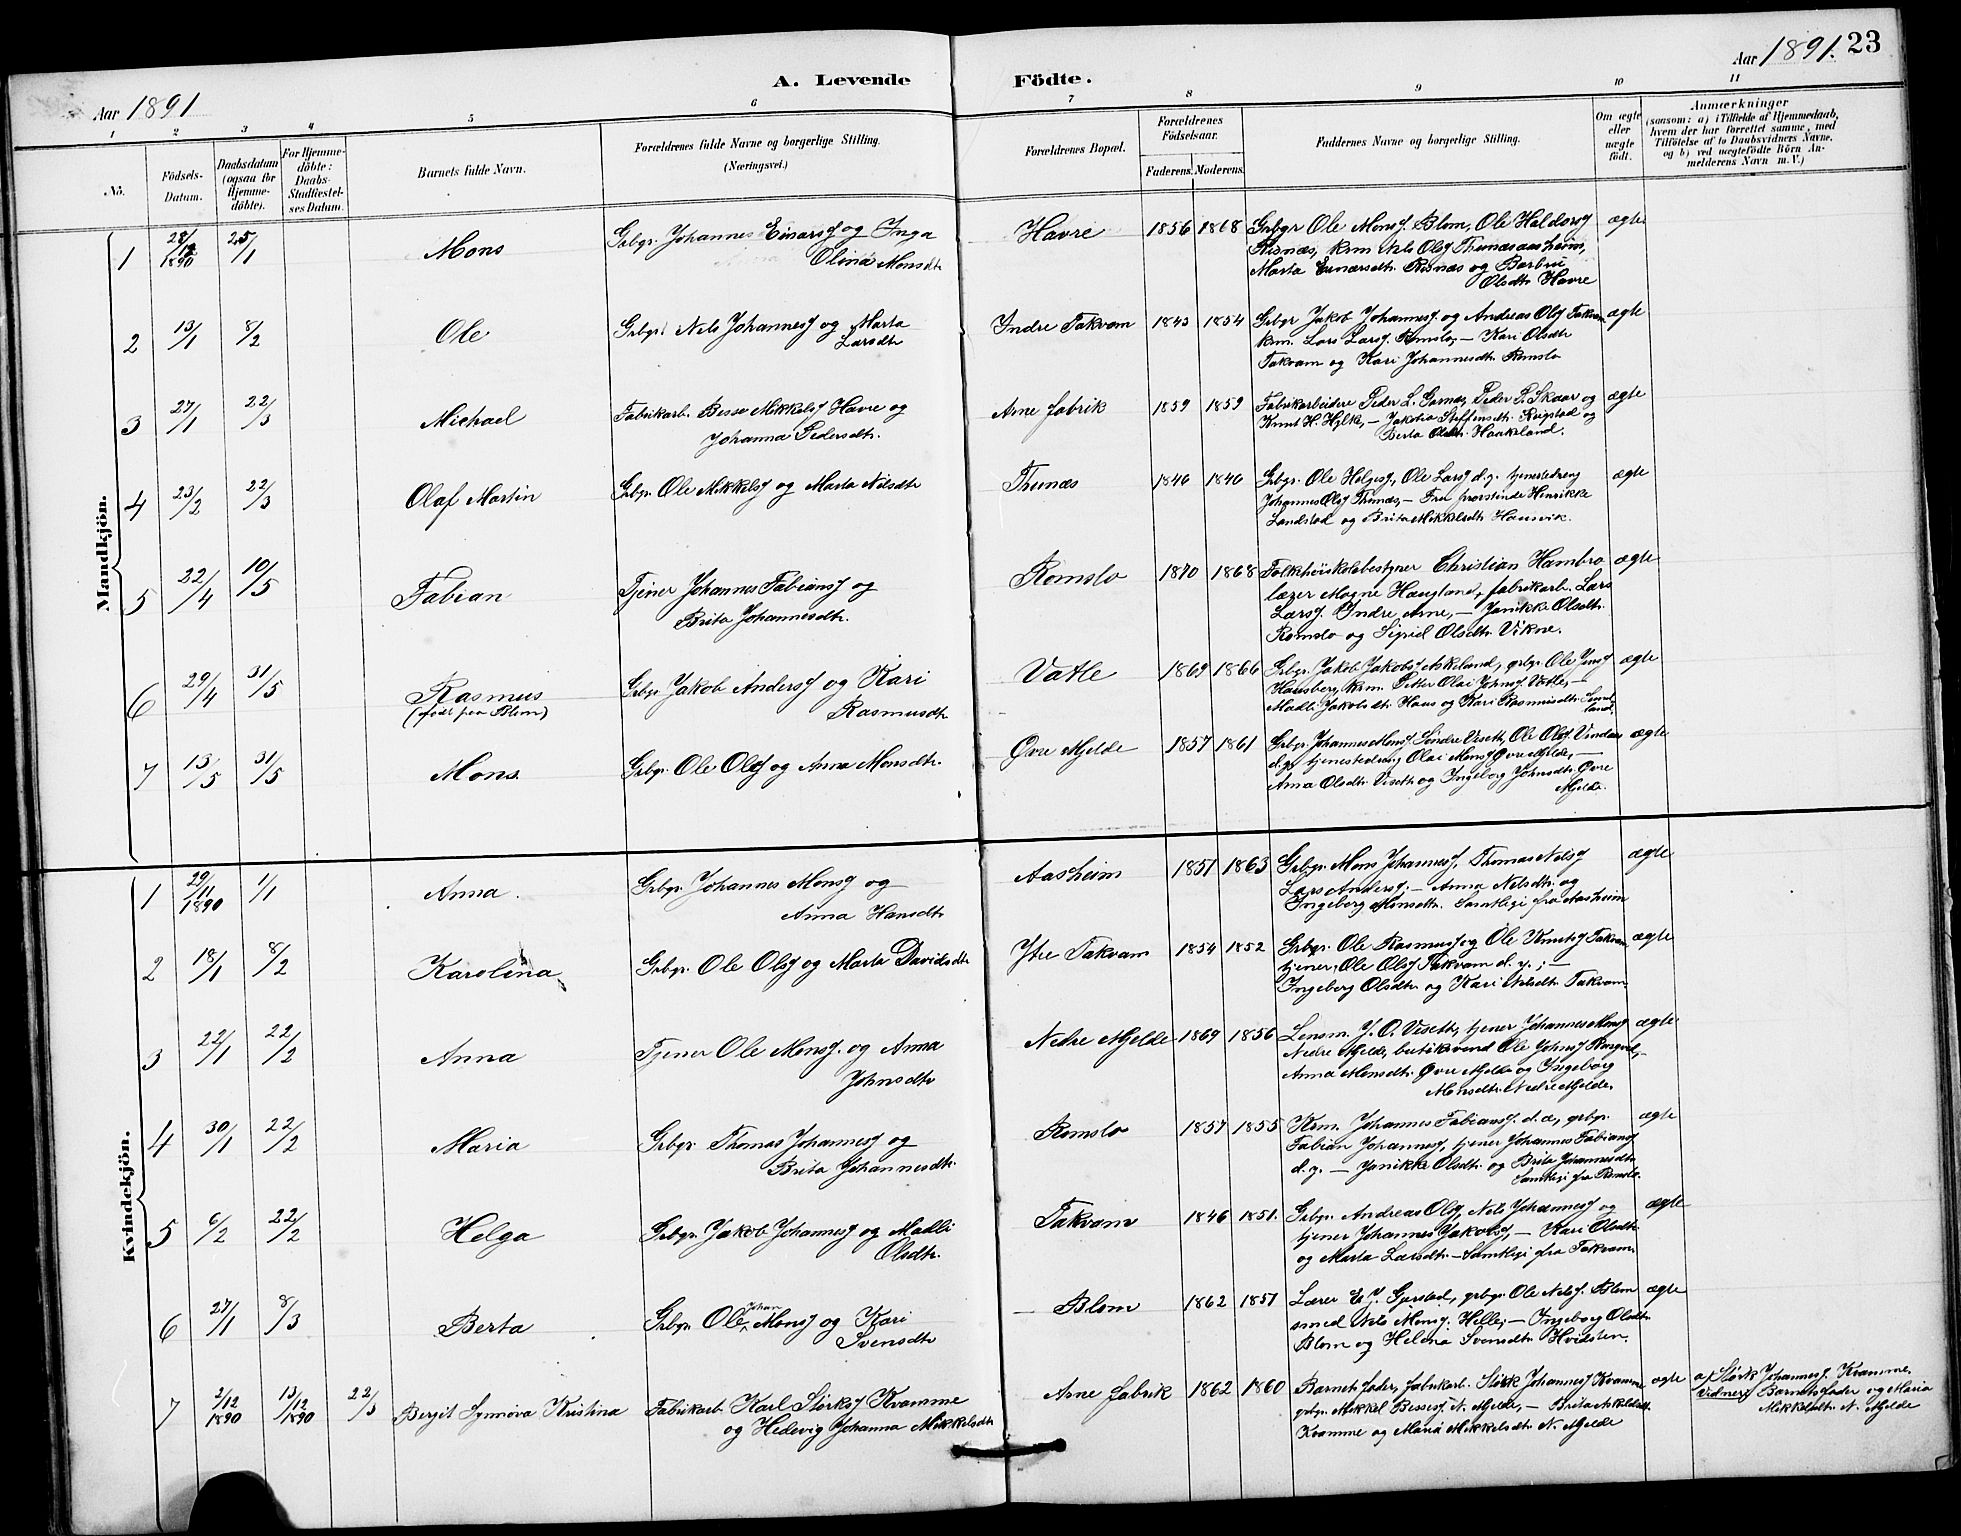 A. Levende Födte.
Aar 1891
Aar 1891. 23
1 2 3 4 5 6 7 8 9 10 11
No.
Födsels-Datum.
Daabsdatum (ogsaa for Hjemme-döbte).
For Hjemme-döbte: Daabs-Stadfæstel-ses Datum.
Barnets fulde Navn.
Forældrenes fulde Navne og borgerlige Stilling.
(Næringsvei.)
Forældrenes Bopæl.
Forældrenes Födselsaar.
Faderens. Moderens.
Faddernes Navne og borgerlige Stilling.
Om ægte eller uægte födt.
Anmærkninger
(saasom: a) i Tilfælde af Hjemmedaab,
hvem der har forrettet samme, med
Tilföielse af to Daabsvidners Navne.
og b) ved uægtefödte Börn An-
melderens Navn m. V.)
Mandkjön.
1 28/12 1890 25/1 Mons Grbgr. Johannes Einarsf og Inga
Olina Monsdtr Havre 1856 1868 Grbgr Ole Monsf. Blom, Ole Haldorsf
Risnæs, krm Nels Olsf Thunæsaasheim,
Marta Einarsdtr. Risnæs og Barbru
Olsdtr Havre ægte
2 13/1 8/2 Ole Grbgr. Nels Johannesf og Marta
Larsdtr Indre Takvam 1843 1854 Grbgr Jakob Johannesf og Andreas Olsf Takvam
krm. Lars Larsf. Romslo, — Kari Olsdtr
Takvam og Kari Johannesdtr Romslo ægte
3 27/1 22/3 Michael Fabrikarb. Besse Mikkelsf Havre og
Johanna Pedersdtr. Arne fabrik 1859 1859 Fabrikarbeidere Peder L. Garnæs, Peder P. Skaar og
Knut H. Hylke, — Jakobia Steffensdtr. Ruistad og
Berta Olsdtr. Haukeland. ægte
4 23/2 22/3 Olaf Martin Grbgr. Ole Mikkelsf og Marta Nilsdtr Thunæs 1846 1846 Grbgr. Ole Helgesf., Ole Larsf d.y. tjenestedreng
Johannes Olsf Thunæs, — Fru provstinde Henrikke
Landstad og Brita Mikkelsdtr Hausvik. ægte
5 22/4 10/5 Fabian Tjener Johannes Fabiansf og
Brita Johannesdtr. Romslo 1870 1868 Folkehöiskolebestyrer Christian Hambro
lærer Magne Haugland, fabrikarb. Lars
Larsf. Indre Arne, — Janikke Olsdtr.
Romslo og Sigrid Olsdtr. Vikne. ægte
6 29/4 31/5 Rasmus
(födt paa Blom) Grbgr Jakob Andersf og Kari
Rasmusdtr Vatle 1869 1866 Grbgr. Jakob Jakobsf Askeland, grbgr Ole Jensf
Hansberg, krm. Petter Olai Johnsf Vatle, —
Madli Jakobsdtr Haus og Kari Rasmusdtr ægte
7 13/5 31/5 Mons Grbgr. Ole Olsf og Anna Monsdtr. Övre Mjelde 1857 1861 Grbgr. Johannes Monsf. Söndre Viseth, Ole Olsf Vindan
d.y. tjenestedreng Olai Monsf Övre Mjelde, —
Anna Olsdtr. Viseth og Ingeborg Johnsdtr. Övre
Mjelde. ægte
Kvindekjön.
1 29/11 1890 1/1 Anna Grbgr. Johannes Monsf og
Anna Hansdtr Aasheim 1851 1863 Grbgr. Mons Johannesf, Thomas Nelsf
Lars Andersf. — Anna Nelsdtr og
Ingeborg Monsdtr. Samtlige fra Aasheim ægte
2 18/1 8/2 Karolina Grbgr. Ole Olsf og Marta Davidsdtr Ytre Takvam 1854 1852 Grbgr. Ole Rasmusf og Ole Knutsf Takvam
tjener, Ole Olsf Takvam d. y.; —
Ingeborg Olsdtr og Kari Nelsdtr Takvam ægte
3 22/1 22/2 Anna Tjener Ole Monsf. og Anna
Johnsdtr Nedre Mjelde 1869 1856 Lensm. J. O. Viseth, tjener Johannes Monsf
Nedre Mjelde, Ole Johnsf
Anna Monsdtr. Övre Mjelde og Ingeborg
Monsdtr. Nedre Mjelde. ægte
4 30/1 22/2 Maria Grbgr Thomas Johannesf og
Brita Johannesdtr. Romslo 1857 1855 Krm. Johannes Fabiansf. d. æ, grbgr.
Fabian Johannesf, tjener Johannes Fabiansf
d. y. — Janikke Olsdtr. og Brita Johannesdtr
Samtlige fra Romslo. ægte
5 6/2 22/2 Helga Grbgr. Jakob Johannesf og Madli
Olsdtr. Takvam 1846 1851. Grbgr. Andreas Olsf, Nels Johannesf og
tjener Johannes Jakobsf, — Kari Olsdtr.
og Marta Larsdtr. — Samtlige fra Takvam. ægte
6 27/1 8/3 Berta Grbgr. Ole Johan Monsf og Kari
Svensdtr Blom 1862 1857 Lærer E. J. Gjerstad, grbgr Ole Nelsf. Blom
smed Nels Monsf. Helle, — Ingeborg Olsdtr.
Blom og Helena Svensdtr. Hvidsten. ægte
7 2/12 1890 13/12 1890 22/3 Bergit Synnöva Kristina Fabrikarb Karl Störksf Kvamme
og Hedevig Johanna Mikkelsdtr Arne fabrik 1862 1860 Barnets fader, fabrikarb. Störk Johannesf Kvamme
grbgr. Mikkel Bessesf N. Mjelde, — Brita Askildsdtr
Kvamme og Maria Mikkelsdtr N. Mjelde ægte a/ Störk Johannesf. Kvamme.
Vidner/ Barnets fader og Maria
Mikkelsdtr. N. Mjelde